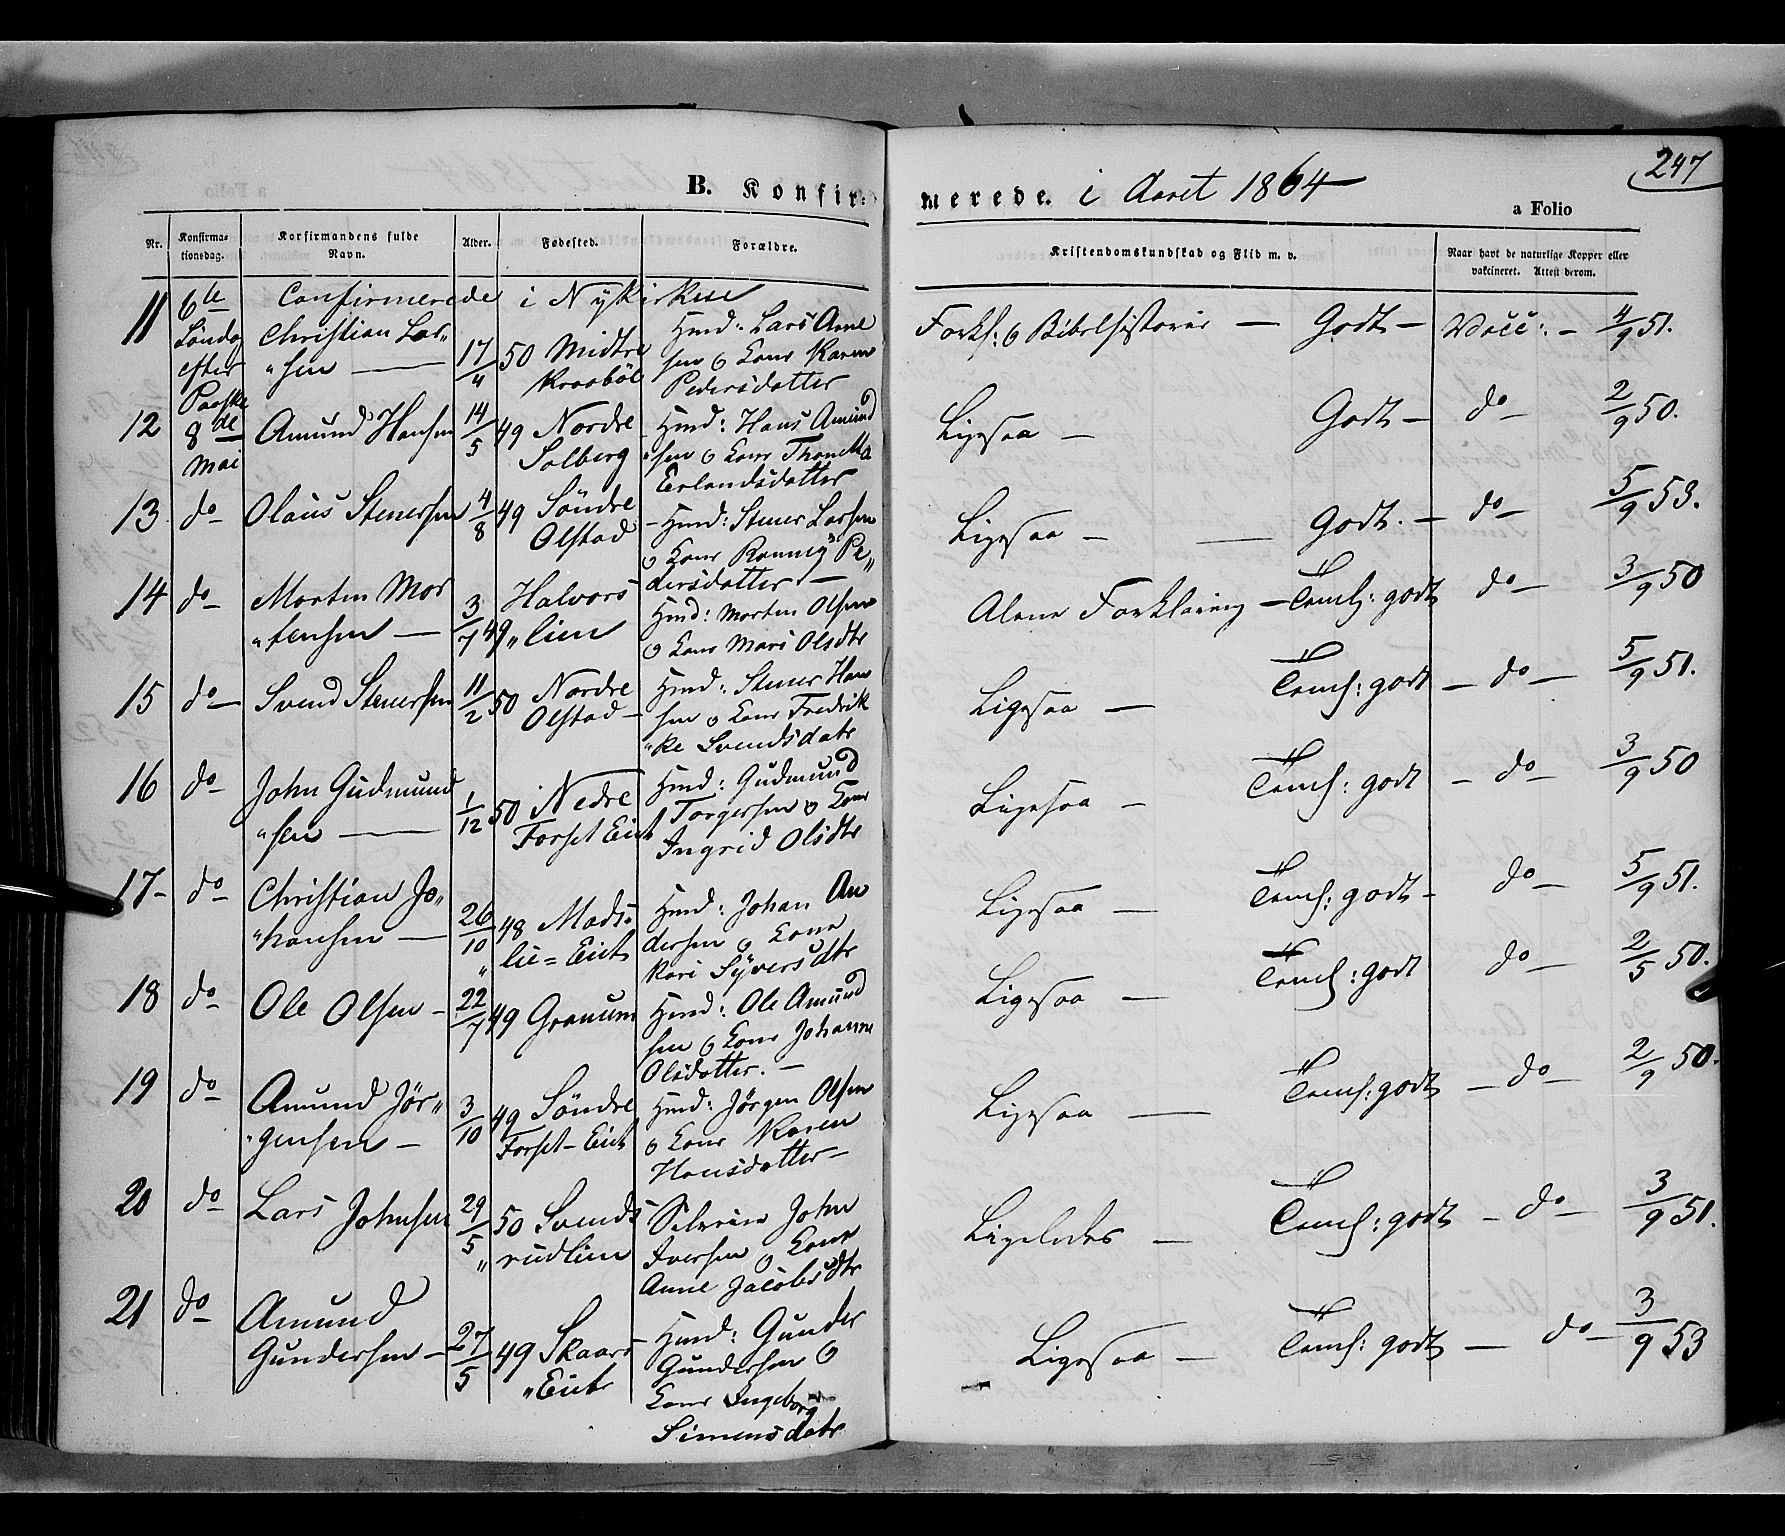 247
B. Konfirmerede. i Aaret 1864
a Folio
Nr. Konfirmationsdag. Konfirmandens fulde Navn. Alder. Fødested. Forældre. Kristendomskundskab og Flid m. v. Naar havt de naturlige Kopper eller vakcineret. Attest derom.
Confirmerede i Nykirke
11 6te Søndag efter Paaske 8de Mai Christian Lar„ „sen — 17/4 50 Midtre Kraabøl Hmd: Lars Arne sen o Kone Karen Pedersdatter Forkl: o Bibelhistorie — Godt — Vacc: — 4/9 51.
12 Amund Hansen 14/5 49 Nordre Solberg Hmd: Hans Amund „sen o Kone Thonetta Erlandsdatter Ligesaa — Godt — do — 2/9 50.
13 do — Olaus Stenersen 4/8 49 Søndre Olstad — Hmd: Stener Larsen o Kone Ronnug Pe„ dersdatter. — Ligesaa — — Godt. — do — 5/9 53.
14 do — Morten Mor „tensen — 3/7 49 Halvors „lien Hmd: Morten Olsen o Kone Mari Olsdtr Alene Forklaring — Teml: godt do — 3/9 50
15 do — Svend Stenersen 11/2 50 Nordre Olstad — Hmd: Stener Han sen o Kone Fredrik „ke Svendsdatr Ligesaa — Teml: godt — do — 5/9 51.
16 do — John Gudmund „sen — 1/12 50 Nedre Forset Eiet Hmd: Gudmund Torgersen o Kone Ingrid Olsdtr Ligesaa — Teml: godt — do — 3/9 50
17 — do — Christian Jo„ „hansen — 26/10 48 Mads„ lie = Eiet Hmd: Johan An dersen o Kone Kari Syversdtr Ligesaa — Teml: godt — do — 5/9 51.
18 do — Ole Olsen — 22/7 49 Granum Hmd: Ole Amund sen o Kone Johanne Olsdatter. — Ligesaa — Teml: godt do — 2/5 50.
19 do — Amund Jør„ „gensen — 3/10 49 Søndre Forset — Eiet Hmd: Jørgen Olsen o Kone Karen Hansdatter — Ligesaa — Teml: godt — do — 2/9 50.
20 do — Lars Johnsen 29/5 50 Svends rudlien Selveier John Iversen o Kone Anne Jacobsdtr Ligeledes — Teml: godt — do — 3/9 51.
21 do — Amund Gundersen — 27/5 49 Skaars „Eiet Hmd: Gunder Gundersen o Kone Ingeborg Simensdatr Ligesaa — Teml: godt — do — 3/9 53